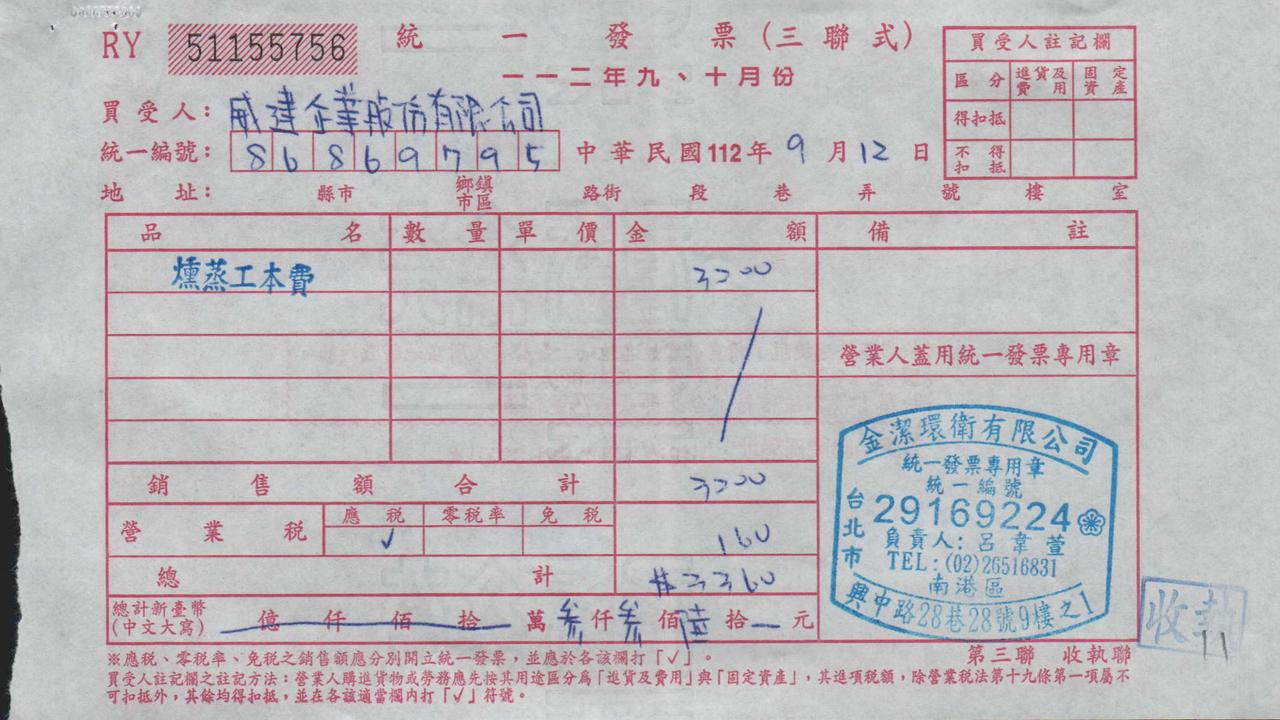 RY 51155756 統一發票(三聯式)
一一二年九、十月份
買受人註記欄
區分 進貨及費用 固定資產
得扣抵
不得扣抵
買受人: 威建企業股份有限公司
統一編號: 86869795 中華民國112年9月12日
地址: 縣市 鄉鎮市區 路街 段 巷 弄 號 樓 室
品名 數量 單價 金額 備註
燻蒸工本費 3200
營業人蓋用統一發票專用章
銷售額合計 3200
營業稅 應稅 零稅率 免稅 160
✓
總計 #3360
總計新臺幣(中文大寫) 億仟佰拾萬參仟參佰陸拾 元
金潔環衛有限公司
統一發票專用章
統一編號
29169224
台北市
負責人:呂韋萱
TEL:(02)26516831
南港區
興中路28巷28號9樓之1
收執
※應稅、零稅率、免稅之銷售額應分別開立統一發票,並應於各該欄打「✓」。
第三聯 收執聯
買受人註記欄之註記方法:營業人購進貨物或勞務應先按其用途區分為「進貨及費用」與「固定資產」,其進項稅額,除營業稅法第十九條第一項屬不
可扣抵外,其餘均得扣抵,並在各該適當欄內打「✓」符號。